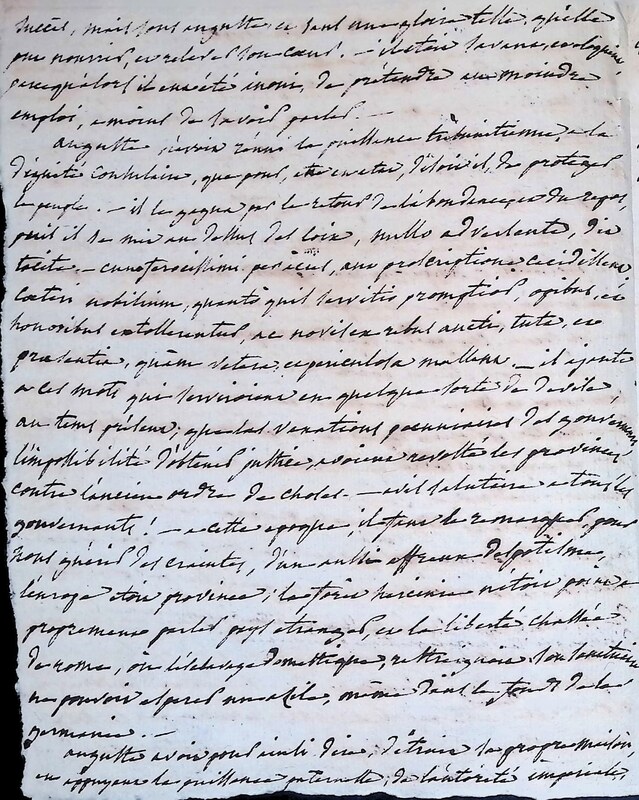 succès, mais sous auguste, ce sont une gloire telle, quelle
pour nourrir, et relever son cœur. — il étoit savant, eloquent,
parcequ'alors il eut été inoui, de prétendre au moindre
emploi, a moins de savoir parler. —
auguste, n'avoit réuni la puissance tribunitienne, a la
dignité Consulaire, que pour, être en etat, disoit il, de proteger
le peuple. — il le gagna par le retour de l'abondance, du repos,
puis il se mit au dessus des loix, nullo adversante, dit
tacite. — cum ferocissimi per acies, aut proscriptione cecidissent
ceteri nobilium, quanto quis servitio promptior, opibus, et
honoribus extollerentur, ac novis ex rebus aucti, tuta, et
praesentia, quam vetera, et periculosa mallent. — il ajoute
a ces mots qui serviroient en quelque sorte de
au tems présent; que les vexations pecuniaires des gouverneurs
l'impossibilité d'obtenir justice, avoient revolté les provinces
contre l'ancien ordre de choses. — avis salutaire a tous les
gouvernants! — a cette epoque, il faut le remarquer, pour
nous guérir des craintes, d'un aussi affreux despotisme,
l'europe etoit province; la forêt hercinie n'etoit point a
proprement parler pays etranger, et la liberté chassée
de rome, où l'esclavage domestique, restreignoit son sanctuaire
ne pouvoit esperer un asile, même dans le fond de la
germanie. —
auguste avoit pour ainsi dire, détruit sa propre maison
en appuyant la puissance paternelle, de l'autorité impériale,